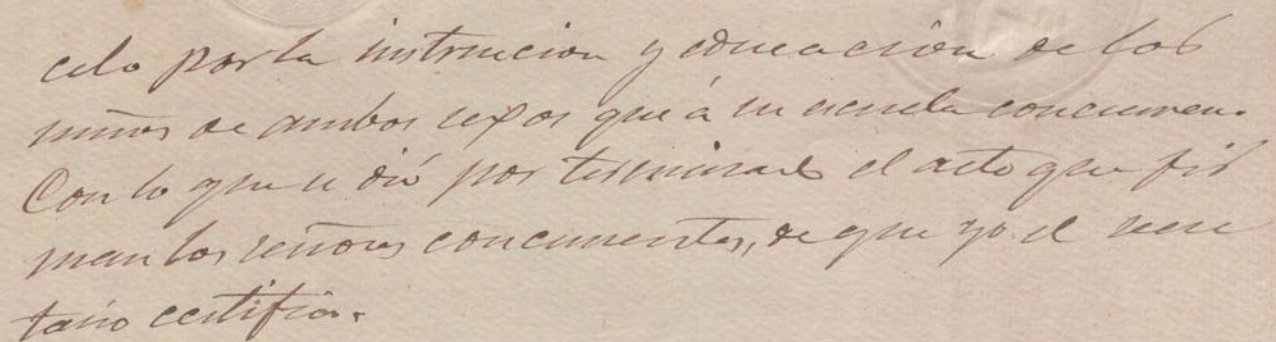 celo por la instruccion y educación de los
niños de ambos sexos que á su escuela concurren.
Con lo que se dió por terminado el acto que fir
man los señores concurrentes, de que yo el secre
tario certifico.